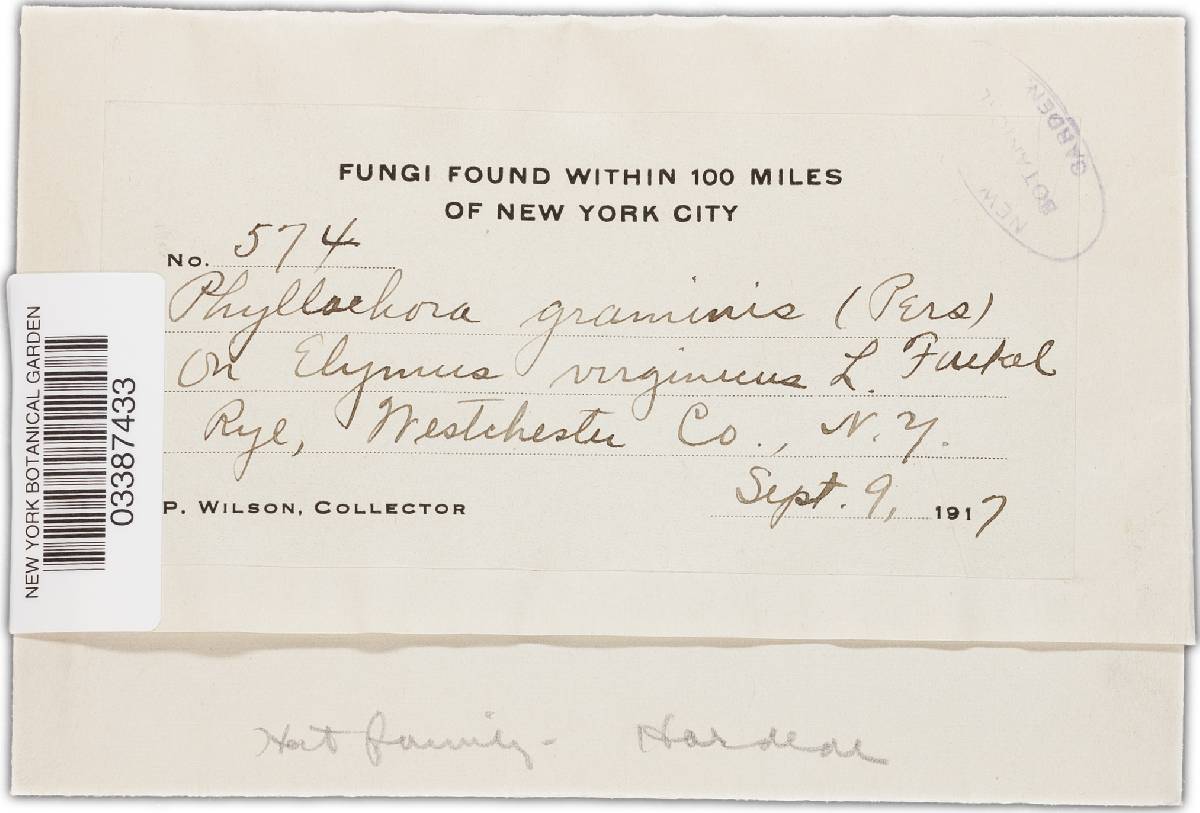 FUNGI FOUND WITHIN 100 MILES
OF NEW YORK CITY
No. 574
Phyllachora graminis (Pers)
On Elymus virginicus L. Fuckel
Rye, Westchester Co., N.Y.
Sept. 9, 1917
P. WILSON, COLLECTOR
NEW YORK BOTANICAL GARDEN
03387433
NEW
BOTANICAL
GARDEN
family - Hordeae